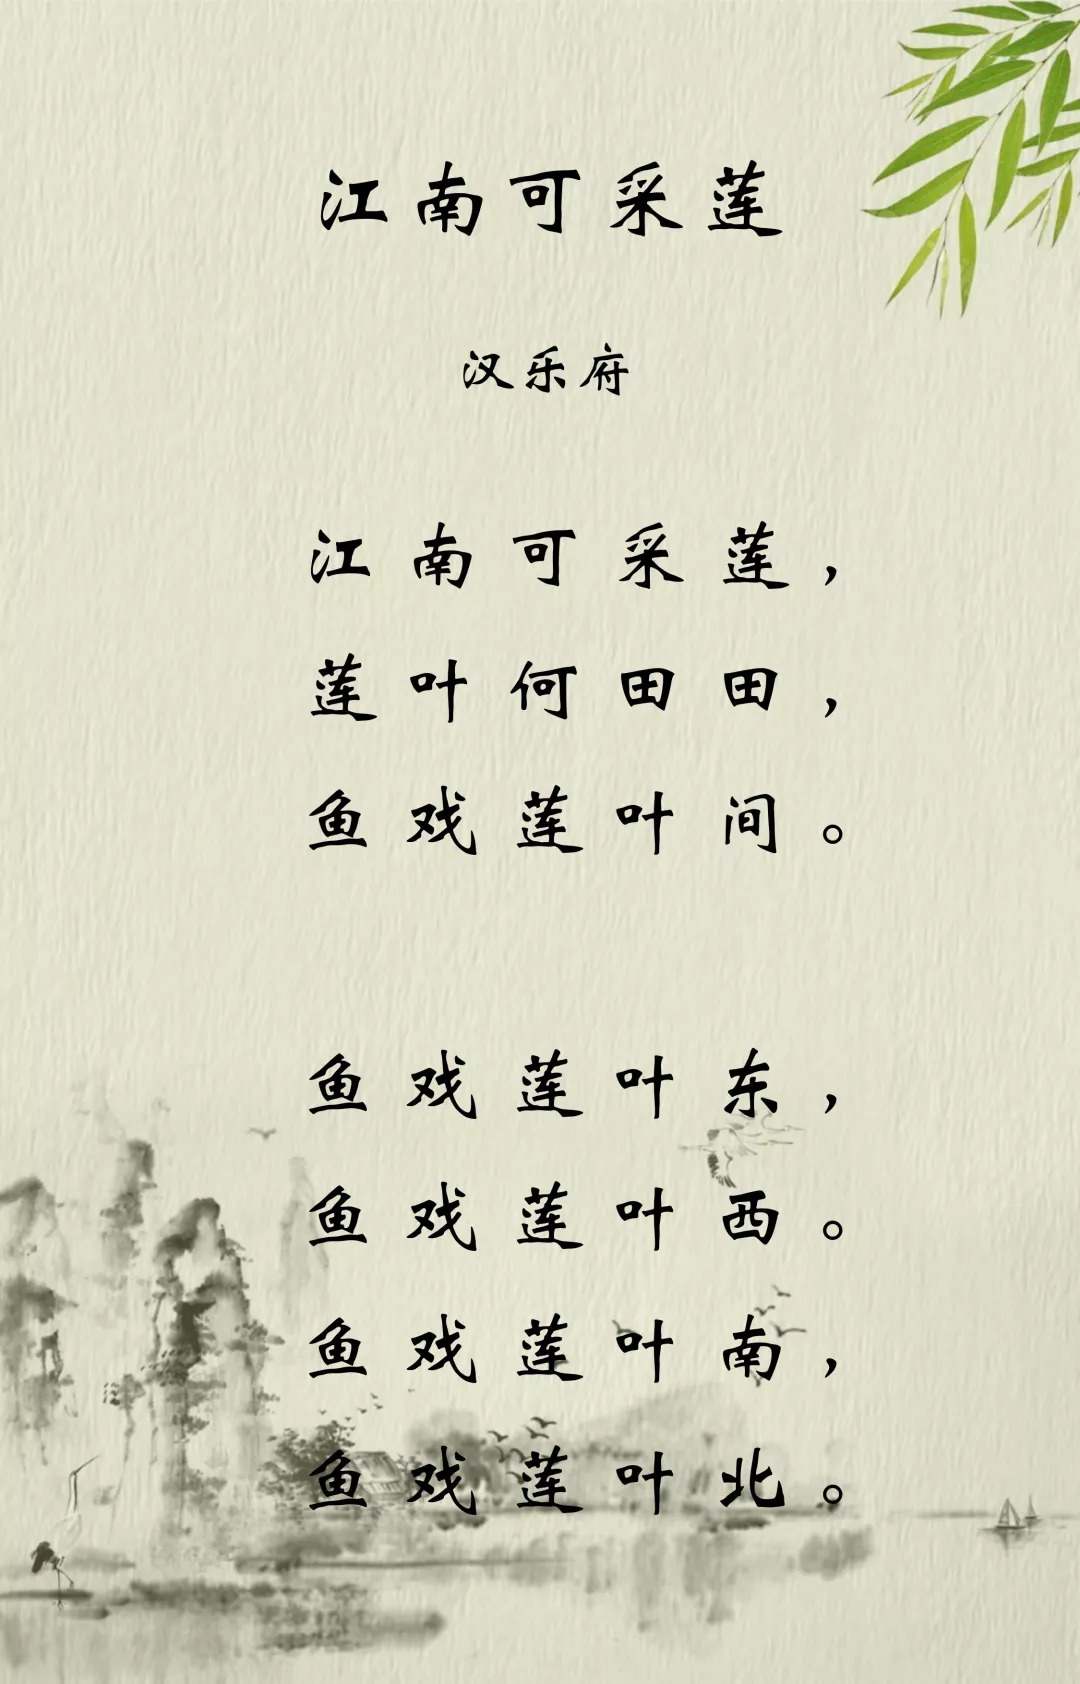 江南可采莲
汉乐府
江南可采莲，
莲叶何田田，
鱼戏莲叶间。
鱼戏莲叶东，
鱼戏莲叶西。
鱼戏莲叶南，
鱼戏莲叶北。